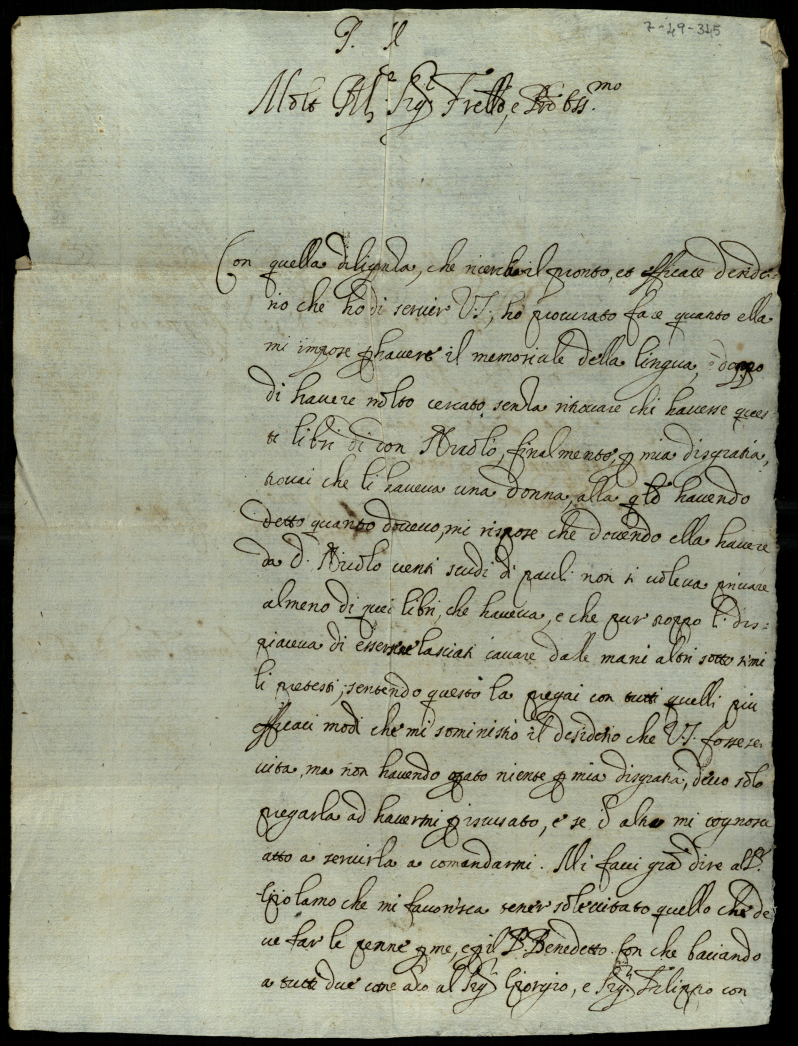 7-49-345
P. Il
Molt' Ill.re Sig.r Frello, e Pro Oss.mo
Con quella diligenza, che ricerca il pronto, et efficace deside-
rio che hò di servir V.S., ho procurato fare quanto ella
mi impose p havere il memoriale della lingua, doppo
di havere molto cercato senza ritrovare chi havesse ques-
ti libri di con Nicolò, finalmente, p mia disgratia,
trovai che li haveva una donna, alla qle havendo
detto quanto dovevo, mi rispose che dovendo ella havere
da D. Nicolo venti scudi di pauli non si voleva privare
almeno di quei libri, che haveva, e che pur troppo li dis-
piaceva di essersene lasciati cavare dalle mani altri sotto simi
li pretesti, sentendo questo la pregai con tutti quelli piu
efficaci modi che mi soministrò il desiderio che V.S. fosse ser
vita, ma non havendo oprato niente p mia disgratia, devo solo
pregarla ad havermi p iscusato, e se p altro mi cognosce
atto a servirla a comandarmi. Mi facci gra dire al P.
Girolamo che mi favorisca tener sollecitato quello che de
ve far le penne p me, e p il P. Benedetto. Con che baciando
a tutti due come anco al Sig.r Giorgio, e Sig.r Filippo con